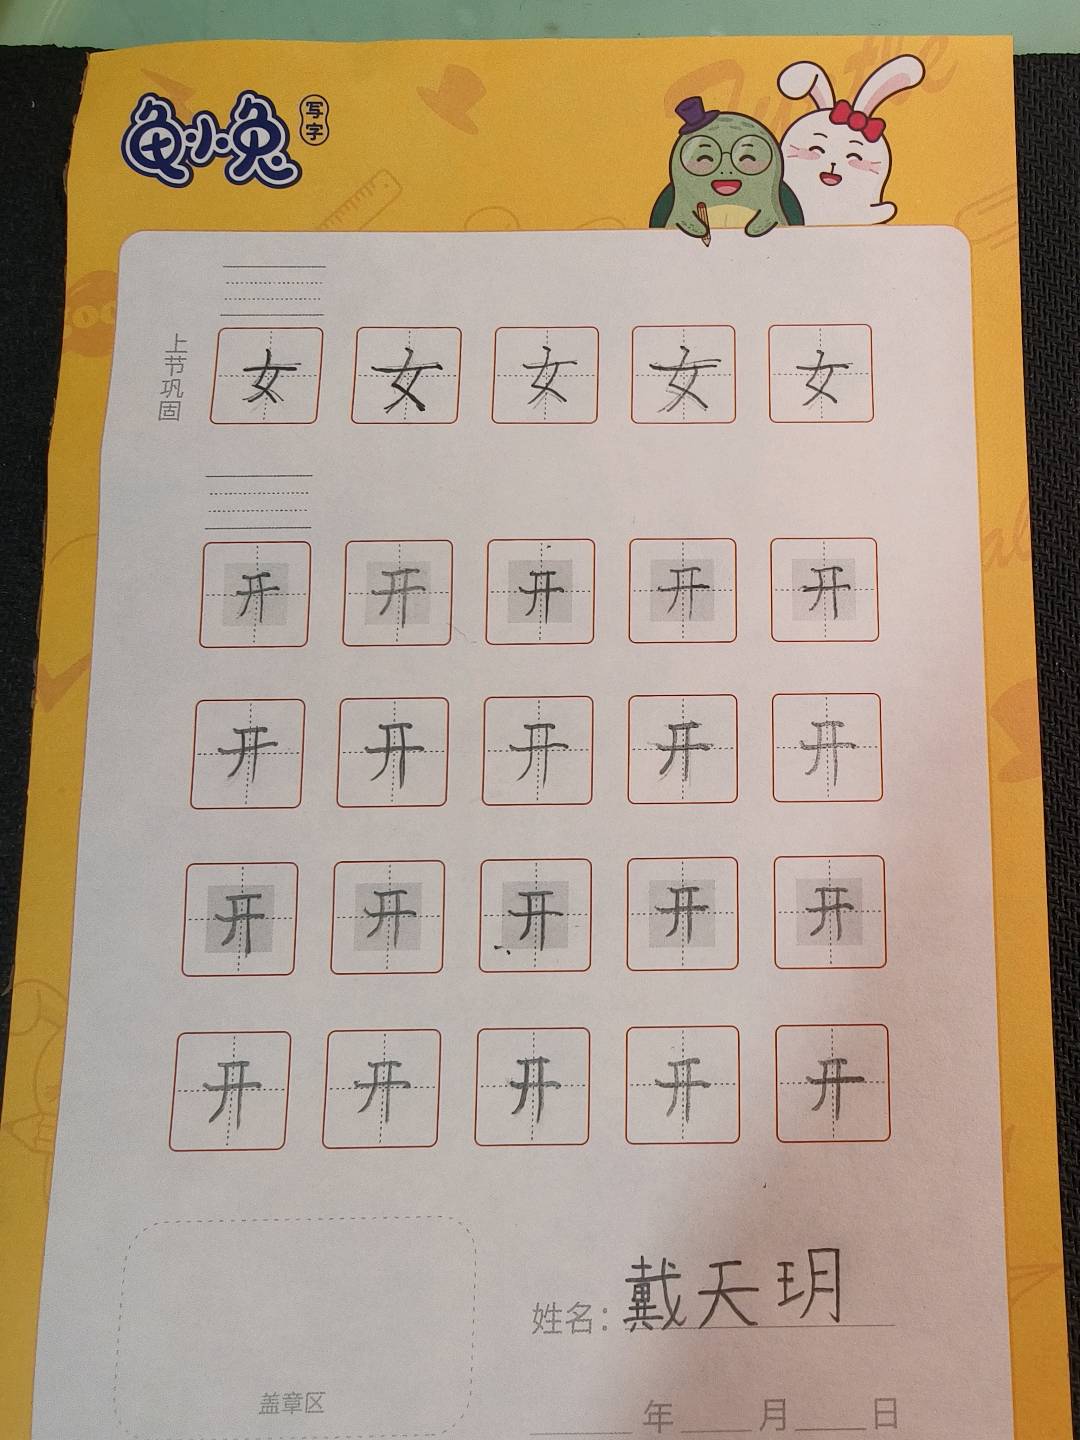 龟小兔 写字
上节巩固
女 女 女 女 女
开 开 开 开 开
开 开 开 开 开
开 开 开 开 开
开 开 开 开 开
姓名：戴天玥
盖章区
年 月 日